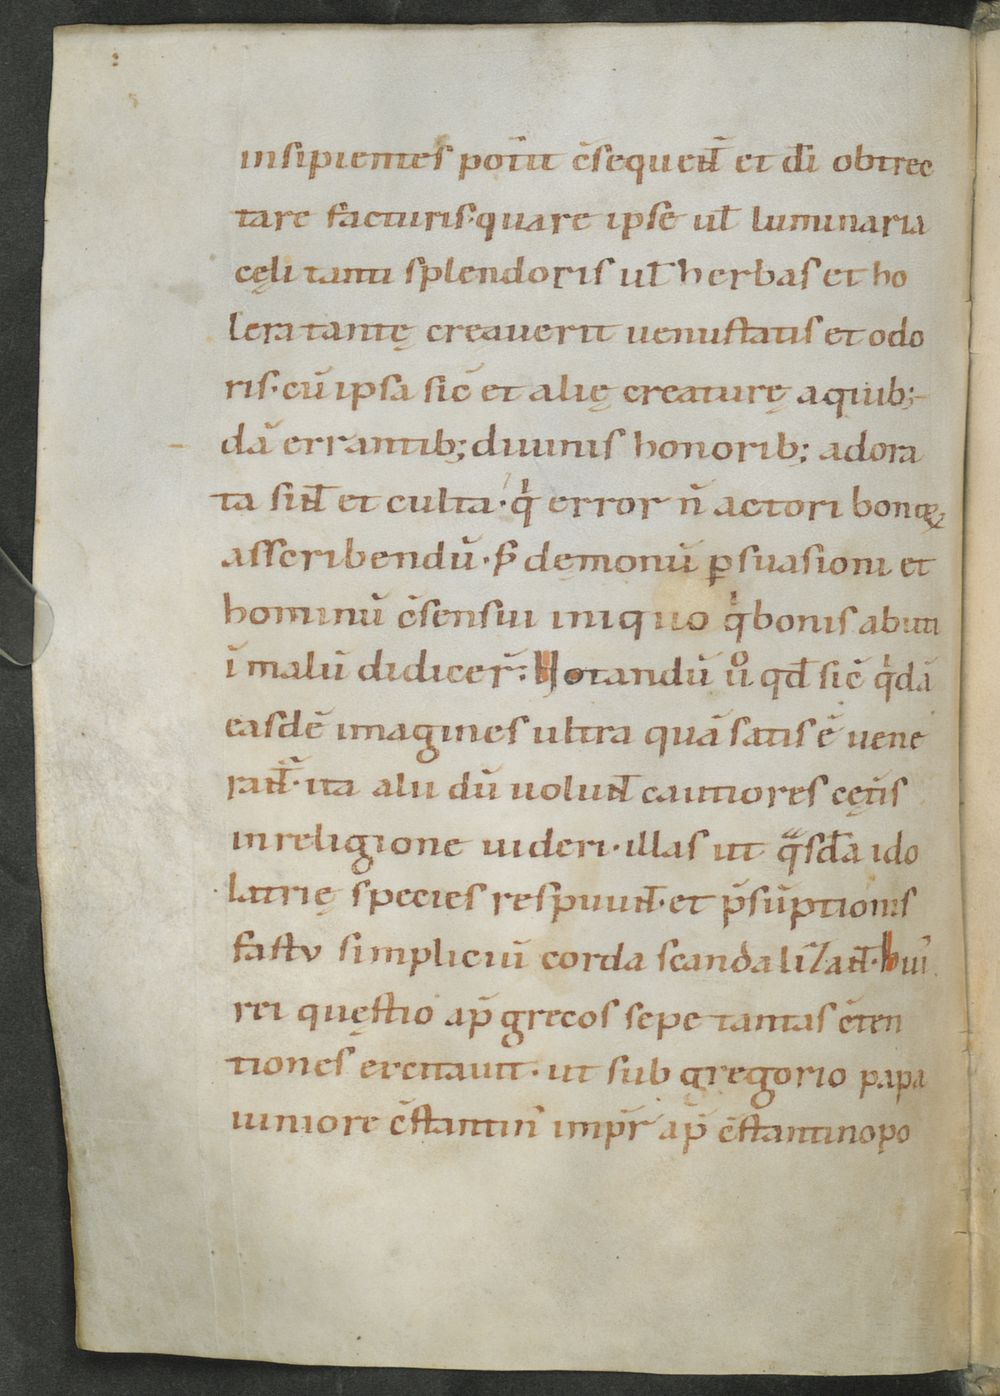 insipientes poterit c̄sequent̄ et dī obtrec
tare facturis·quare ipse ul̄ luminaria
cęli tanti splendoris ul̄ herbas et ho
lera tantę creaverit uenustatis et odo
ris·cū ipsa sic̄ et alię creaturę a quib;
dā errantib; diuinis honorib; adora
ta sint̄ et culta·q̇ error n̄ actori bonoꝝ
asscribendū·s; demonū ꝑsuasioni et
hominū c̄sensui iniquo q̇ bonis abuti
ī malū didicer̄. Notandū ů qd̄ sic̄ q̇dā
easdē imagines ultra quā satis ē uene
rant̄·ita alii dū uolunt̄ cautiores cęt̄is
in religione uideri·illas ut q̄sdā ido
latrię species respuunt̄·et p̄sūptionis
fastv simpliciū corda scandalizant̄·hui᾽
rei quęstio ap̄ grecos sepe tantas c̄ten
tiones excitauit·ut sub gregorio papa
iuniore c̄stantin᾽ imp̄r ap̄ c̄stantinopo